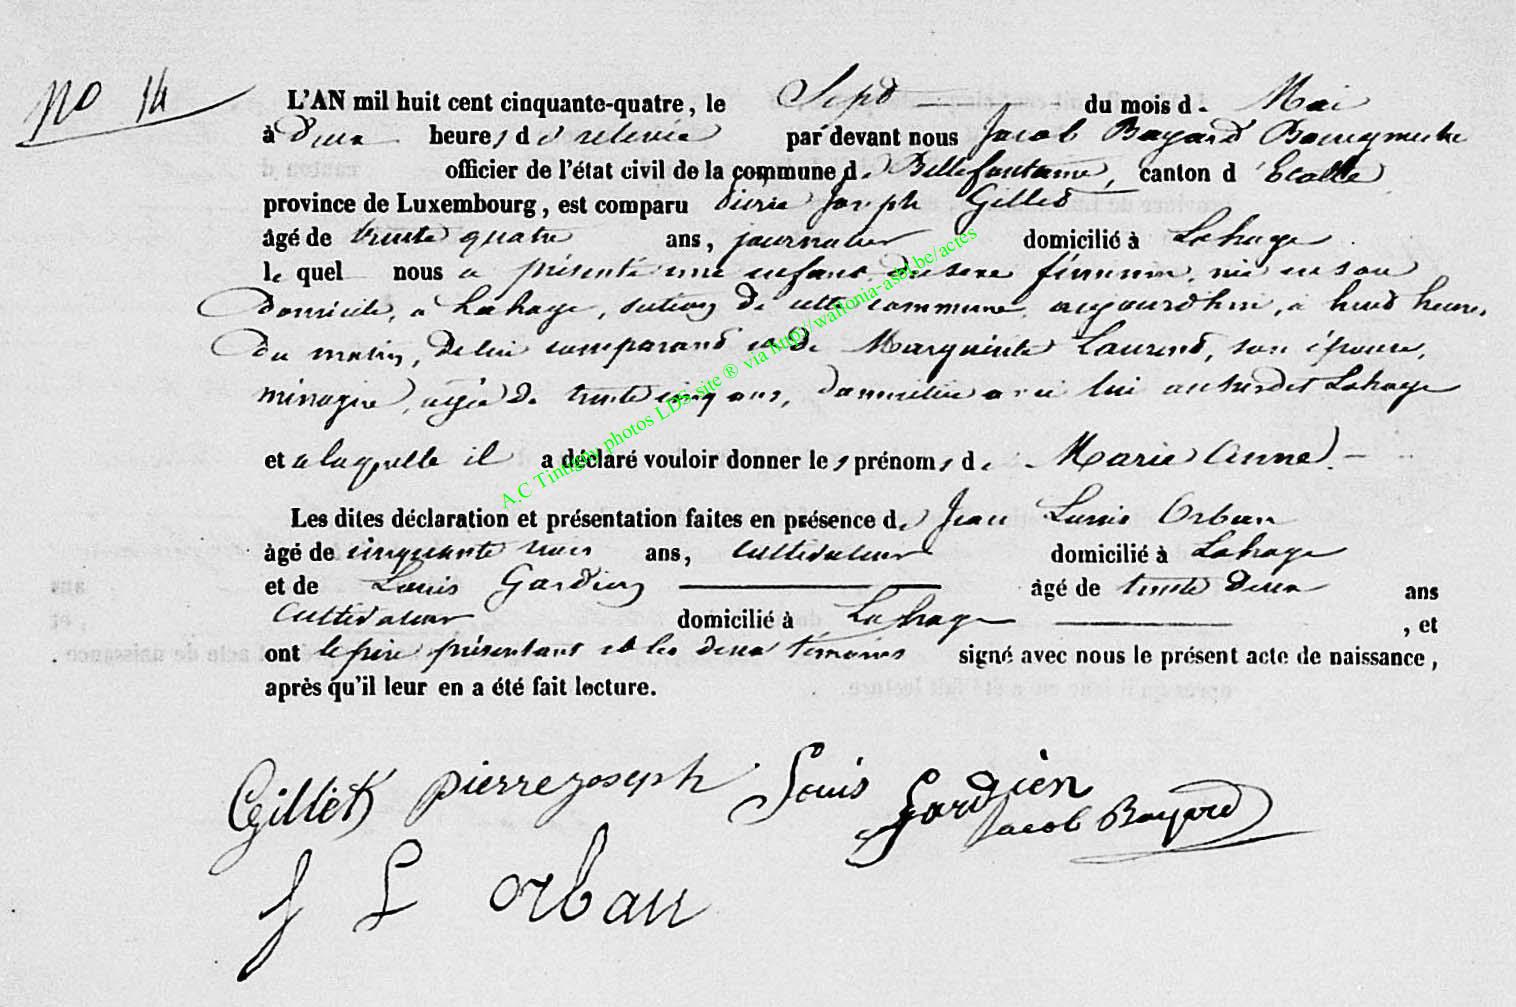 No 14
L'AN mil huit cent cinquante-quatre, le Sept du mois de Mai
à Deux heures de relevée par devant nous Jacob Bayard Bourgmestre
officier de l'état civil de la commune de Bellefontaine, canton d'Etalle
province de Luxembourg, est comparu Pierre Joseph Gillet
âgé de trente quatre ans, journalier domicilié à Lahage
le quel nous a présenté une enfant du sexe féminin, née en son
Domicile, à Lahage, section de cette commune, aujourd'hui, à huit heures
Du matin, De lui comparant et De Marguerite Laurent, son épouse,
ménagère, agée De trente cinq ans, domiciliée avec lui au susdit Lahage
et a laquelle il a déclaré vouloir donner les prénoms de Marie Anne.
Les dites déclaration et présentation faites en présence de Jean Louis Orban
âgé de cinquante trois ans, cultivateur domicilié à Lahage
et de Louis Gardien âgé de trente Deux ans
Cultivateur domicilié à Lahage , et
ont le père présentant et les deux témoins signé avec nous le présent acte de naissance,
après qu'il leur en a été fait lecture.
Gillet pierre joseph Louis Gardien
Jacob Bayard
J L orban
A.C Tintigny photos LDS site ® via http://wallonia-asbl.be/actes